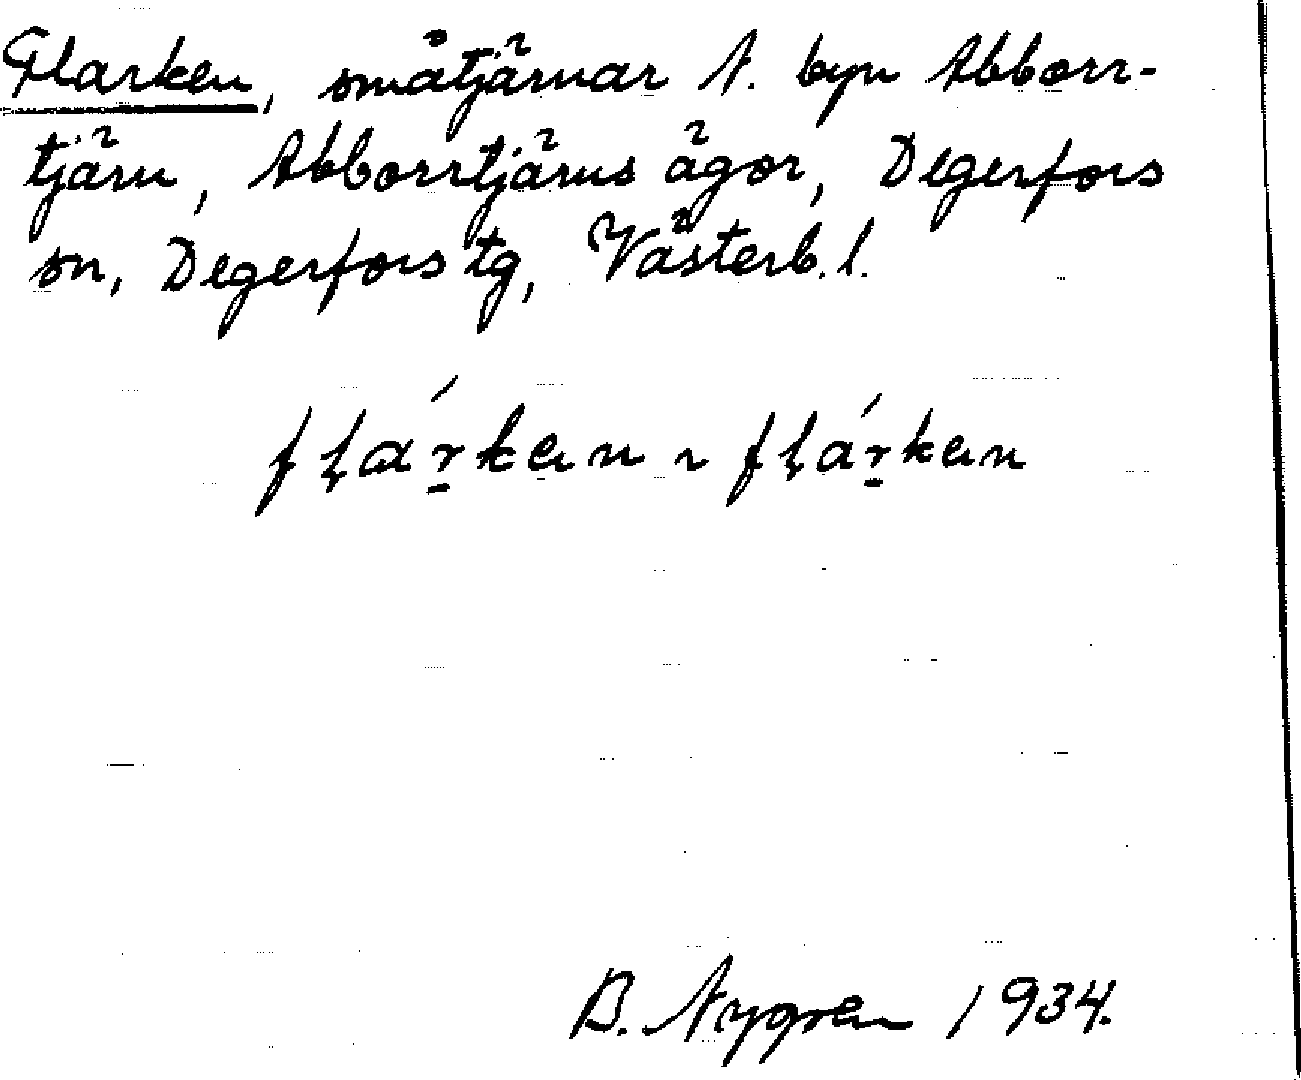 Flarken, småtjärnar N. byn Abborr-
tjärn, Abborrtjärns ägor, Degerfors
sn, Degerfors tg, Västerb. l.
flárken ~ flárken
B. Nygren 1934.